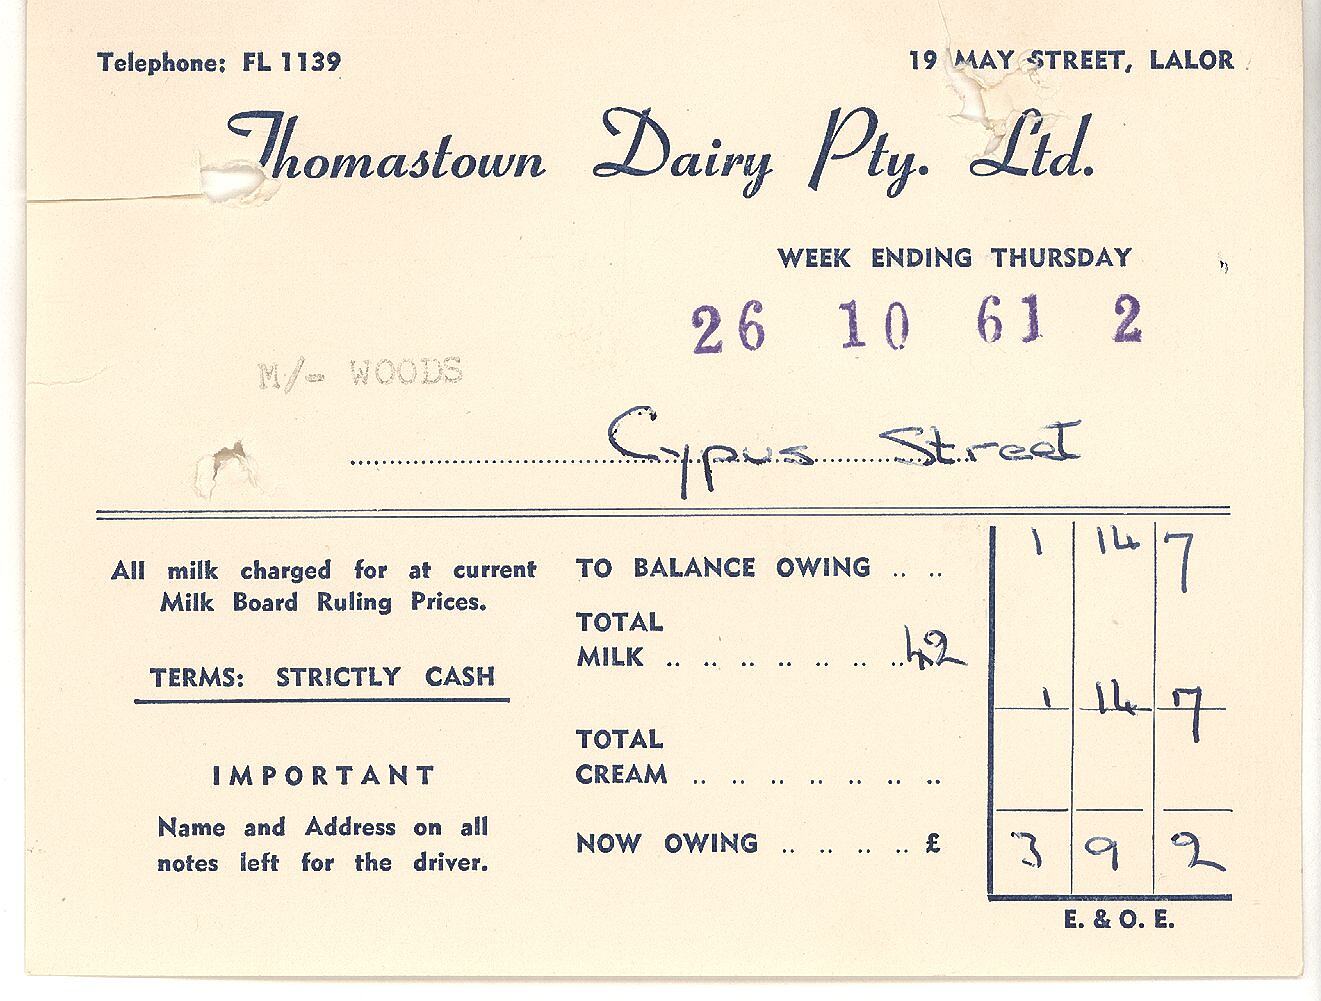 Telephone: FL 1139
19 MAY STREET, LALOR
Thomastown Dairy Pty. Ltd.
WEEK ENDING THURSDAY
26 10 61 2
M/- WOODS
Cypus Street
All milk charged for at current
Milk Board Ruling Prices.
TERMS: STRICTLY CASH
IMPORTANT
Name and Address on all
notes left for the driver.
TO BALANCE OWING .. .. 1 14 7
TOTAL
MILK .. .. .. .. .. .. .. 42 1 14 7
TOTAL
CREAM .. .. .. .. .. .. ..
NOW OWING .. .. .. .. £ 3 9 2
E. & O. E.